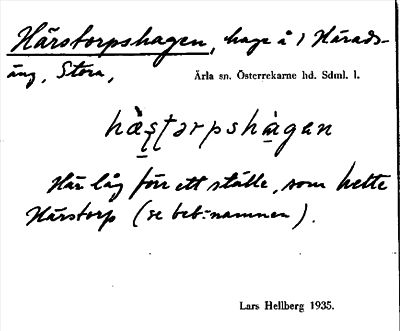 Härstorpshagen, hage å 1 Härads-
äng, Stora,
Ärla sn. Österrekarne hd. Sdml. l.
hä̀ʂʈərpshàgan
Här låg förr ett ställe, som hette
Härstorp (se beb:namnen).
Lars Hellberg 1935.